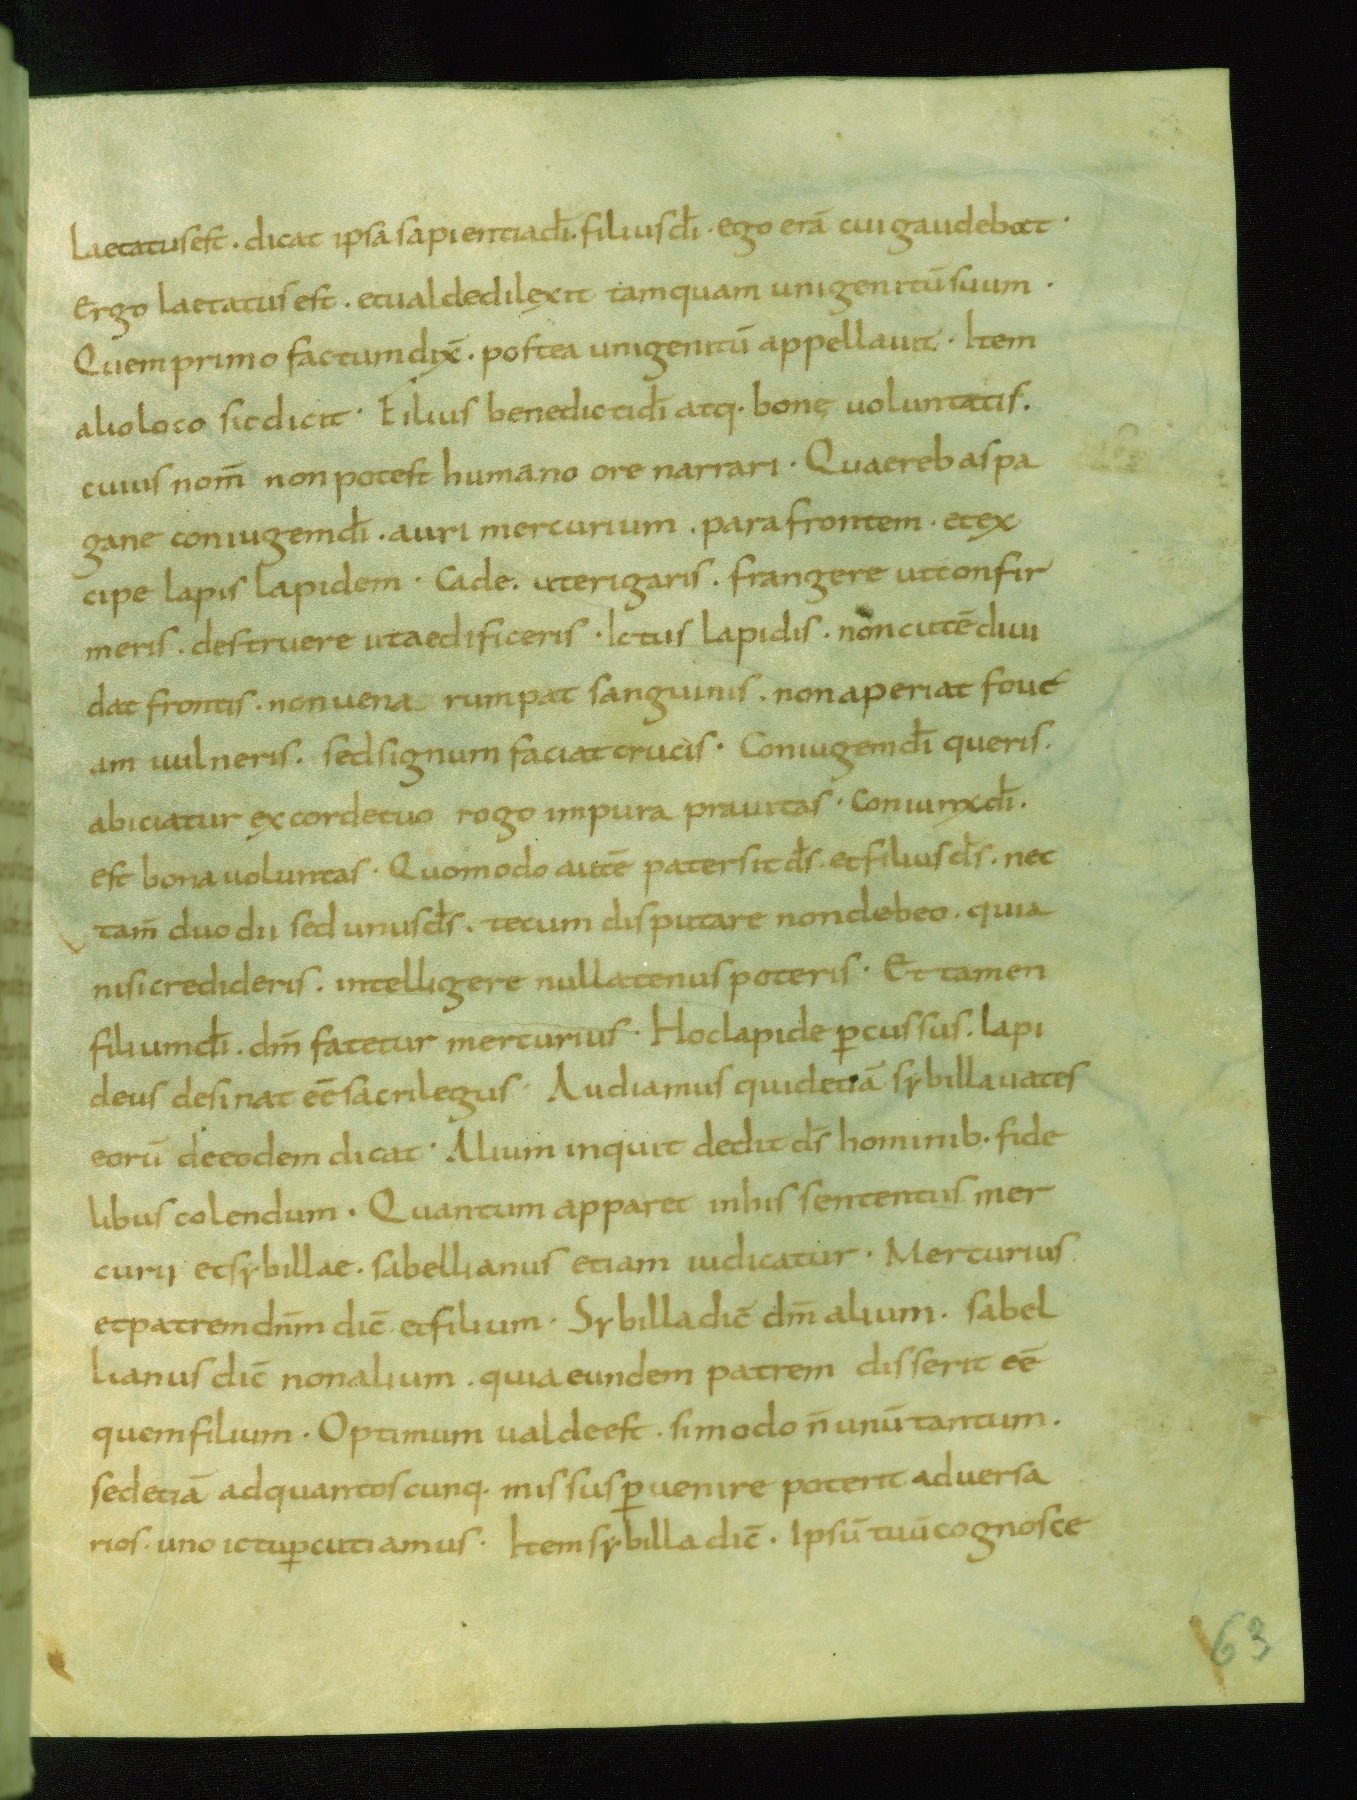 laetatus est · dicat ipsa sapientia dī · filius dī · ego erā cui gaudebat ·
Ergo laetatus est · et ualde dilexit tamquam unigenitū suum ·
Quem primo factum dix̄ · postea unigenitū appellauit · Item
alio loco sic dicit · Filius benedicti dī atq· bonę uoluntatis ·
cuius nom̄ non potest humano ore narrari · Quaerebas pa
gane coniugem dī · auri mercurium · para frontem · et ex
cipe lapis lapidem · Cade · ut erigaris · frangere ut confir
meris · destruere ut aedificeris · Ictus lapidis · non cutē diui
dat frontis · non uena rumpat sanguinis · non aperiat foue
am uulneris · sed signum faciat crucis · Coniugem dī queris ·
abiciatur ex corde tuo rogo impura prauitas · Coniunx dī ·
est bona uoluntas · Quomodo autē pater sit d̄s · et filius d̄s · nec
tam̄ duo dii sed unus d̄s · tecum disputare non debeo · quia
nisi credideris · intelligere nullatenus poteris · Et tamen
filium dī · dm̄ fatetur mercurius · Hoc lapide ꝑcussus · lapi
deus desinat eē sacrilegus · Audiamus quid etiā sybilla uates
eorū de eodem dicat · Alium inquit dedit d̄s hominib· fide
libus colendum · Quantum apparet in his sententiis mer
curij et sybillae · sabellianus etiam iudicatur · Mercurius
et patrem dnm̄ dic̄ et filium · Sybilla dic̄ dm̄ alium · sabel
lianus dic̄ non alium · quia eundem patrem disserit eē
quem filium · Optimum ualde est · si modo n̄ unū tantum ·
sed etiā ad quantoscunq· missus ꝑuenire poterit aduersa
rios · uno ictu ꝑcutiamus · Item sybilla dic̄ · Ipsū tuū cognosce
63